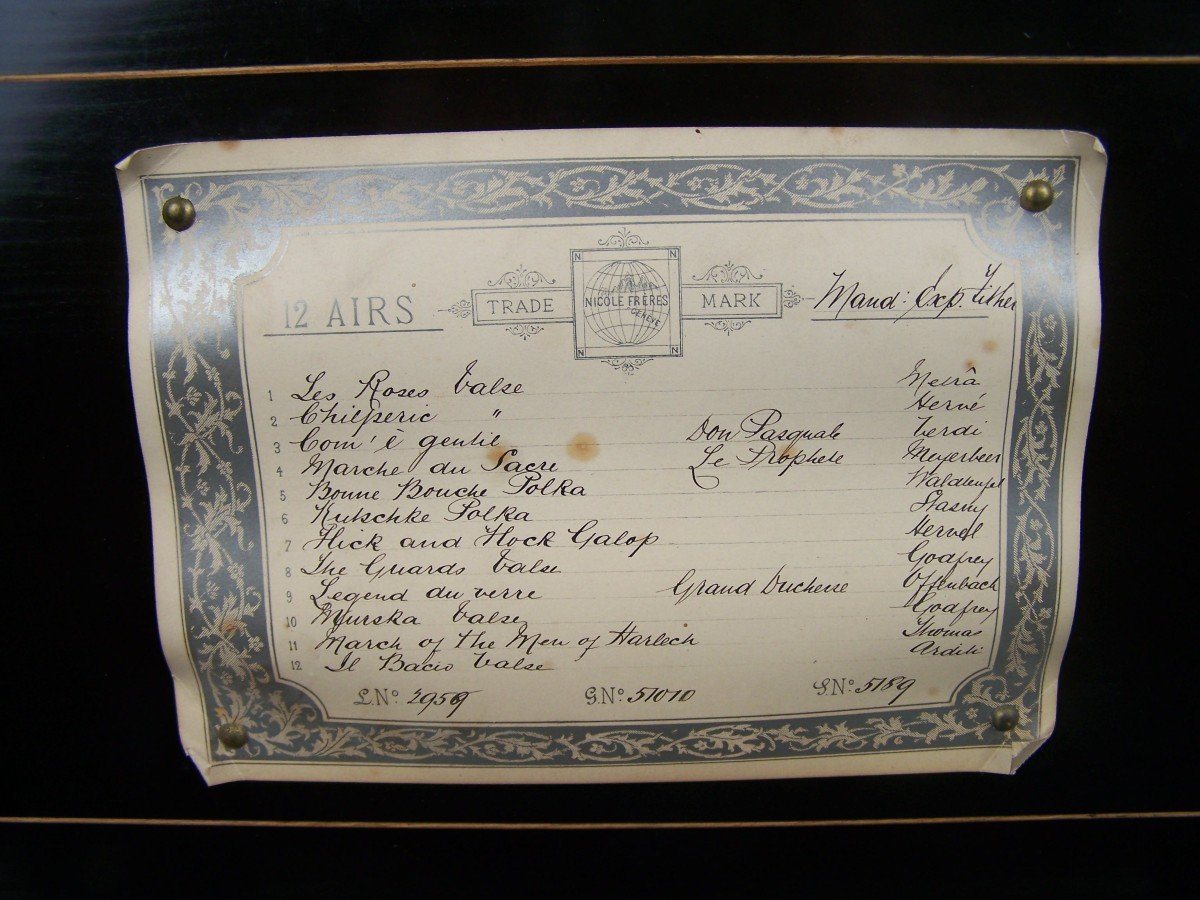 12 AIRS TRADE NICOLE FRÈRES GENÈVE MARK Mand: Exp. Zither
N N
N N
1 Les Roses Valse Metrâ
2 Chilperic " Hervé
3 Com'è gentil Don Pasquale Verdi
4 Marche du Sacre Le Prophete Meyerbeer
5 Bonne Bouche Polka Waldteufel
6 Kutschke Polka Stasny
7 Hick and Hock Galop
8 The Guards Valse Godfrey
9 Legend du verre Grand Duchesse Offenbach
10 Murska Valse Godfrey
11 March of the Men of Harlech Thomas
12 Il Bacio Valse Arditi
L.No. G.No. 51010 S.No. 5189